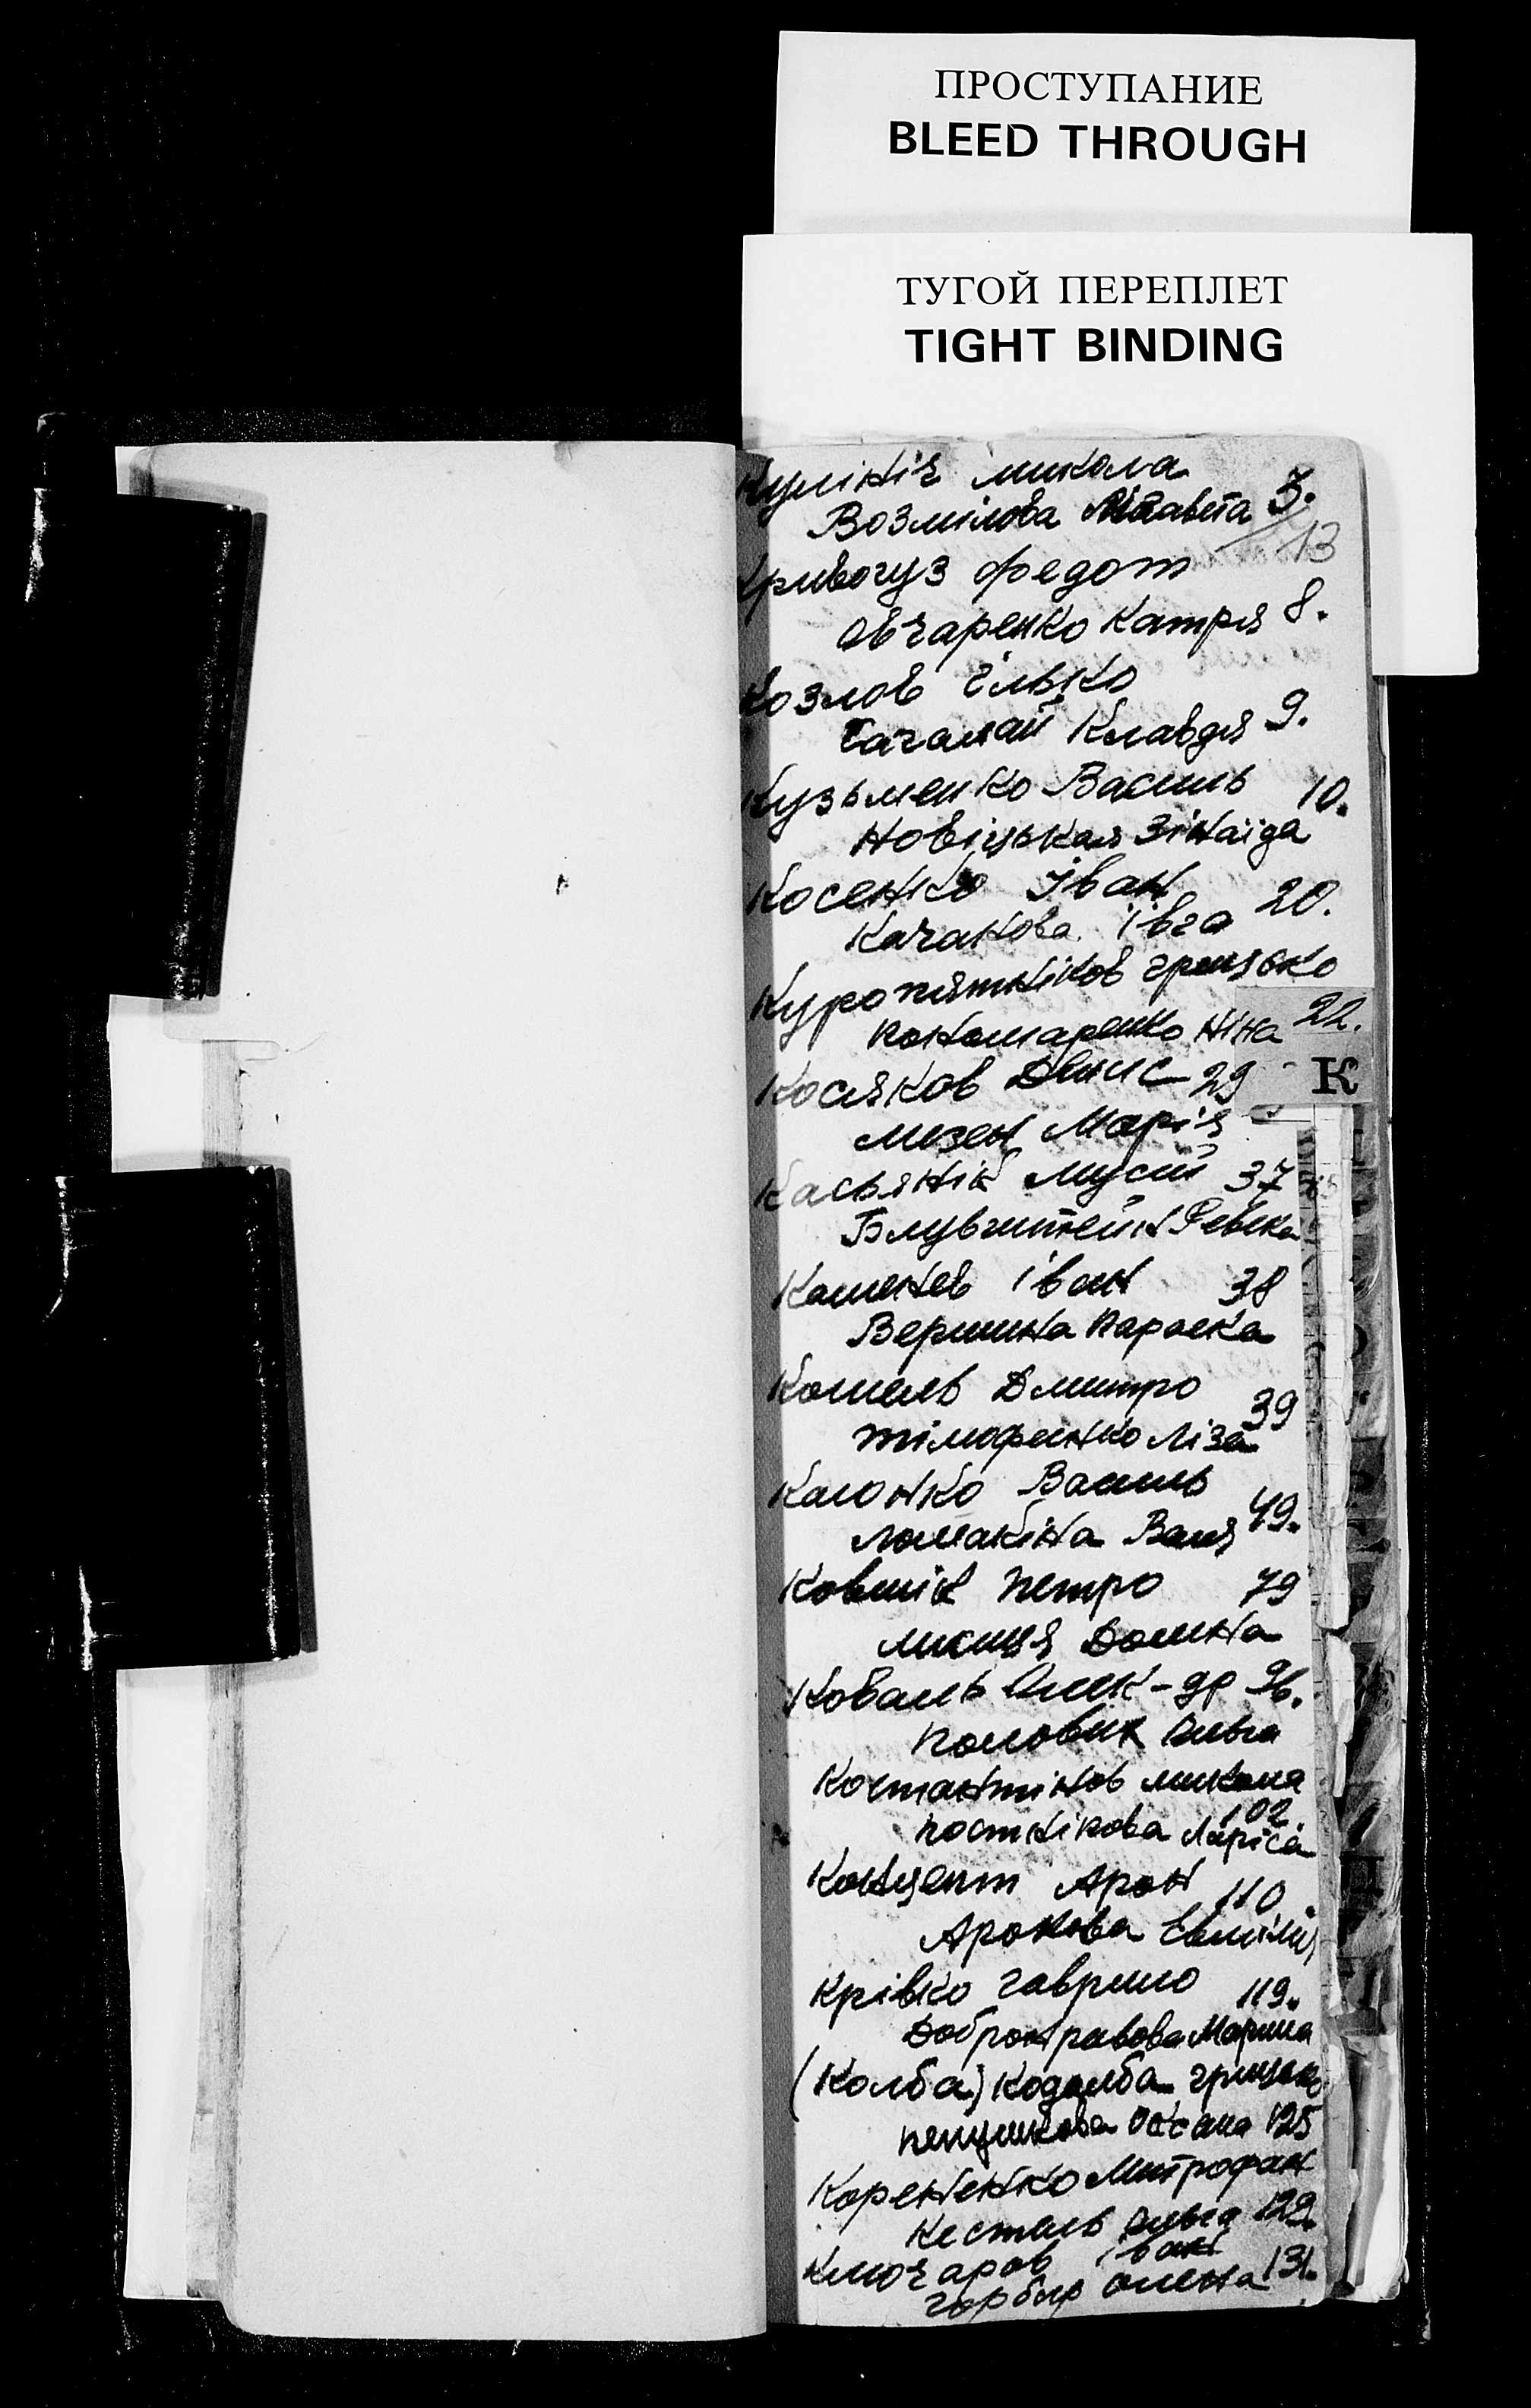 ПРОСТУПАНИЕ
BLEED THROUGH
ТУГОЙ ПЕРЕПЛЕТ
TIGHT BINDING
Кулініч микола
Возмілова 7.
13
Кривогуз федот
Овчаренко Катря 8.
Козлов ілько
Клавдія 9.
Кузьменко Василь 10.
Новіцькая Зінаїда
Косенко Іван 20.
Качанова івга
Куропятніков грицько
Коношаренко Ніна 22.
К
Косяков Денис 29
Мизен Марія
Касьянік Мусій 37
Блувштейн Ревека
Каменев іван 38
Вершина Параска
Кошель Дмитро 39
тімофенко Ліза
Калонко Василь
Ломакіна Валя 49.
Ковшік петро 79
лисиця Домна
Коваль Олек-др 96.
половик Ольга
Костантінов микола
постнікова Ларіса 102.
Концепт Арон 110.
Аронова Евмілія
Крівко гаврило 119.
Добронравова Марина
(Колба) Кодолба грицько
Оксана 125
Корененко Митрофан
Кесталь Ольга 129.
Ключаров іван
горбар олена 131.